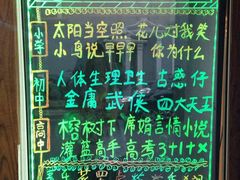 小学 太阳当空照 花儿对我笑
小鸟说早早早 你为什么
初中 人体生理卫生 古惑仔
金庸 武侠 四大天王
高中 榕树下 席娟言情小说
灌篮高手 高考3+1+X